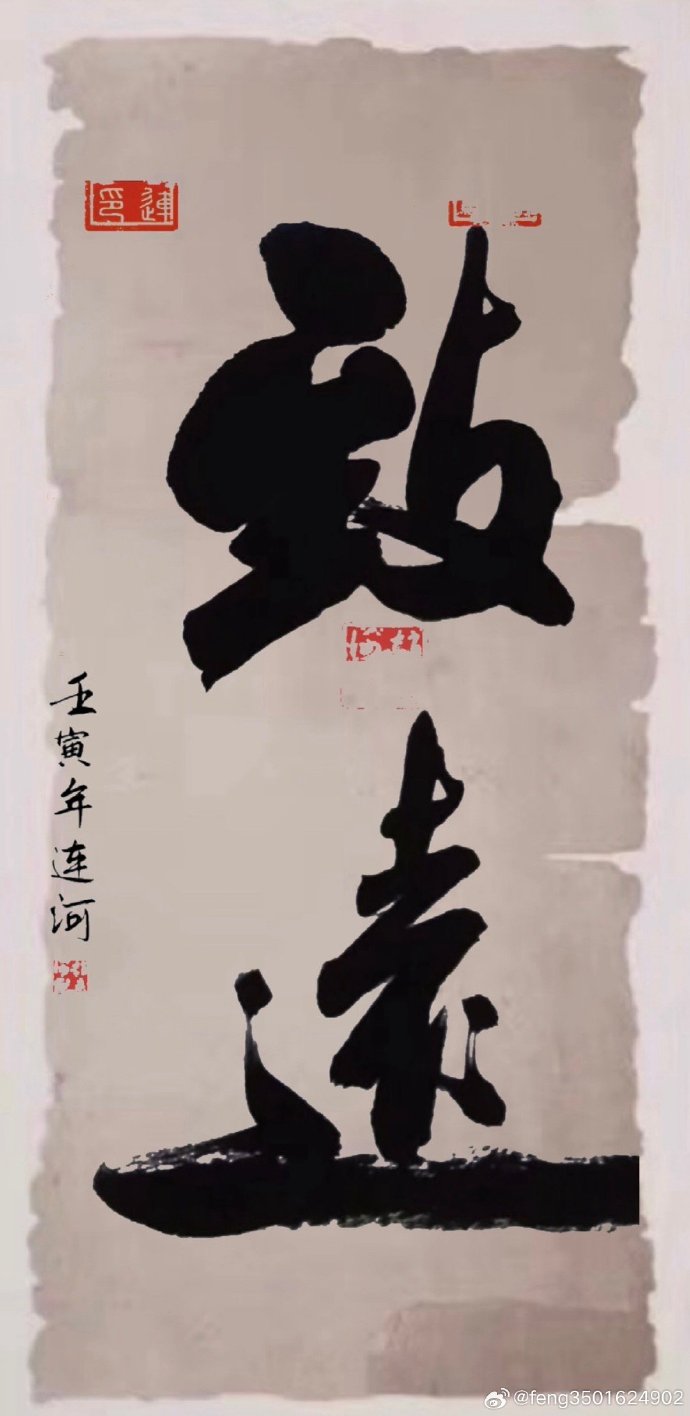 致遠
壬寅年连河
@feng3501624902